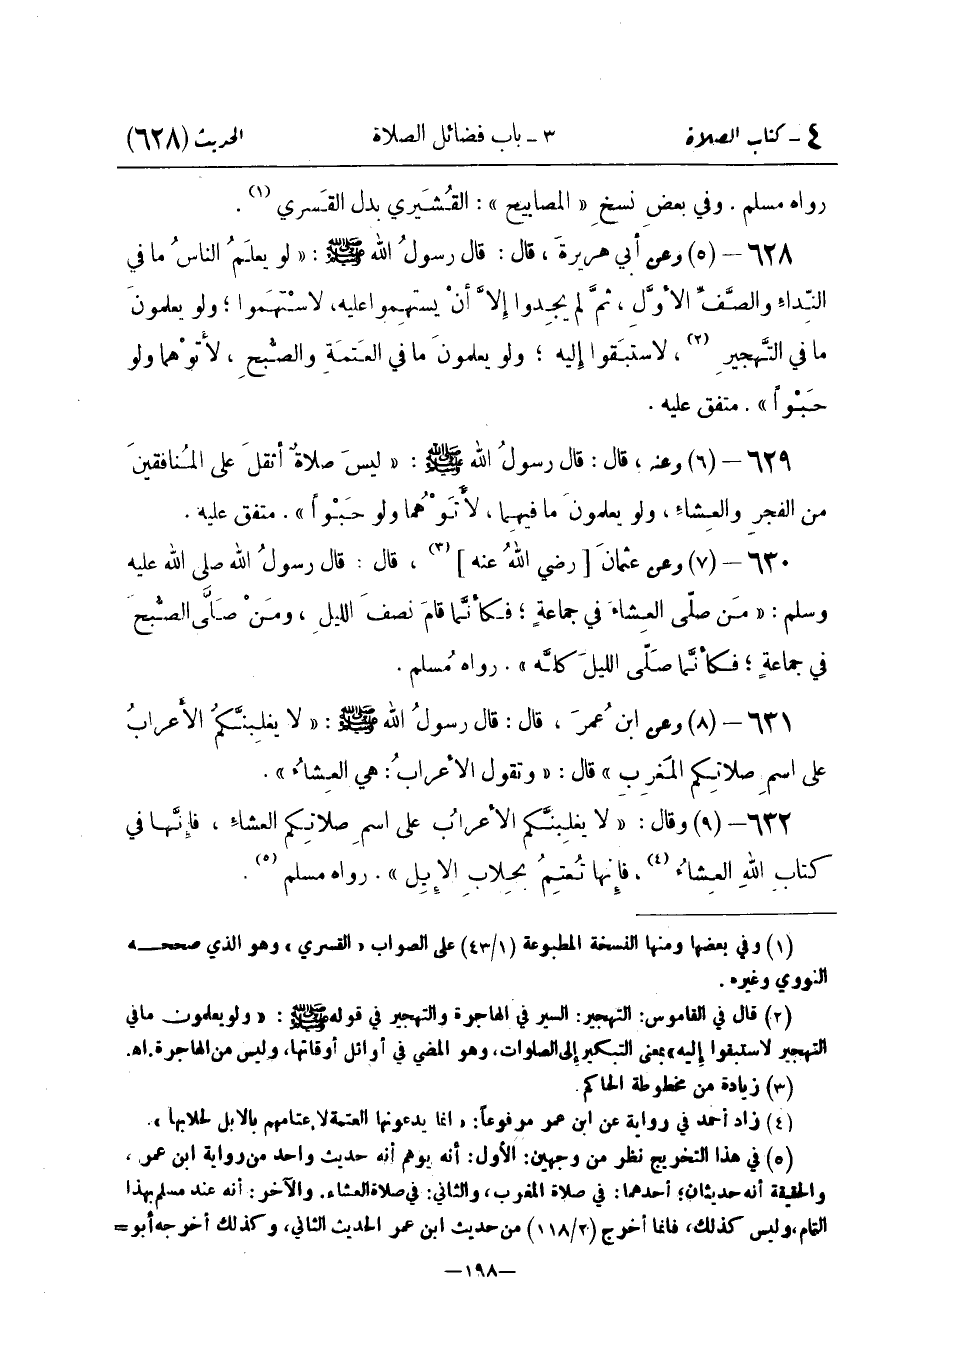 ٤ - كتاب الصلاة ٣ - باب فضائل الصلاة الحديث (٦٢٨)
رواه مسلم . وفي بعضِ نسخِ « المصابيح » : القُشَيري بدل القَسري (١) .
٦٢٨ – (٥) وعن أبي هريرةَ ، قال : قال رسولُ الله ﷺ : « لو يعلَمُ الناسُ ما في
النِّداءِ والصَّفِّ الأوَّلِ ، ثمَّ لم يجِدوا إلاَّ أنْ يستهِموا عليه، لاسْتَهَموا ؛ ولو يعلمونَ
ما في التَّهجيرِ (٢) ، لاستبَقوا إليه ؛ ولو يعلمونَ ما في العَتمَةِ والصُّبحِ ، لأتوْهما ولو
حَبْواً » . متفق عليه .
٦٢٩ – (٦) وعنه ، قال : قال رسولُ الله ﷺ : « ليسَ صلاةٌ أثقلَ على المُنافقينَ
من الفجرِ والعِشاءِ ، ولو يعلمونَ ما فيهِما ، لأَتَوْهُما ولو حَبْواً » . متفق عليه .
٦٣٠ – (٧) وعن عثمانَ [ رضي اللهُ عنه ] (٣) ، قال : قال رسولُ الله صلى الله عليه
وسلم : « مَن صلّى العِشاءَ في جماعةٍ ؛ فكأنَّما قامَ نصفَ الليلِ ، ومَنْ صَلَّى الصُّبحَ
في جماعةٍ ؛ فكأنَّما صَلّى الليلَ كلَّه » . رواه مُسلم .
٦٣١ – (٨) وعن ابن عُمرَ ، قال : قال رسولُ الله ﷺ : « لا يغلِبنَّكمُ الأَعرابُ
على اسمِ صلاتِكم المَغربِ » قال : « وتقول الأعرابُ : هي العِشاءُ » .
٦٣٢ – (٩) وقال : « لا يغلِبنَّكم الأعرابُ على اسمِ صلاتِكم العشاءِ ، فإنَّها في
كتابِ اللهِ العِشاءُ (٤) ، فإنها تُعتِمُ بحِلابِ الإبِل » . رواه مسلم (٥) .
(١) وفي بعضها ومنها النسخة المطبوعة (٤٣/١) على الصواب « القسري » وهو الذي صححه
النووي وغيره .
(٢) قال في القاموس: التهجير: السير في الهاجرة والتهجير في قوله ﷺ : « ولو يعلمون ما في
التهجير لاستبقوا إليه » بمعنى التبكير إلى الصلوات، وهو المضي في أوائل أوقاتها، وليس من الهاجرة.اه.
(٣) زيادة من مخطوطة الحاكم.
(٤) زاد أحمد في رواية عن ابن عمر مرفوعاً: « انما يدعونها العتمة لإعتامهم بالابل لحلابها ».
(٥) في هذا التخريج نظر من وجهين: الأول: أنه يوهم أنه حديث واحد من رواية ابن عمر ،
والحقيقة أنه حديثان؛ أحدهما: في صلاة المغرب، والثاني: في صلاة العشاء. والآخر: أنه عند مسلم بهذا
التمام، وليس كذلك، فانما أخرج (١١٨/٢) من حديث ابن عمر الحديث الثاني، وكذلك أخرجه أبو =
—١٩٨—